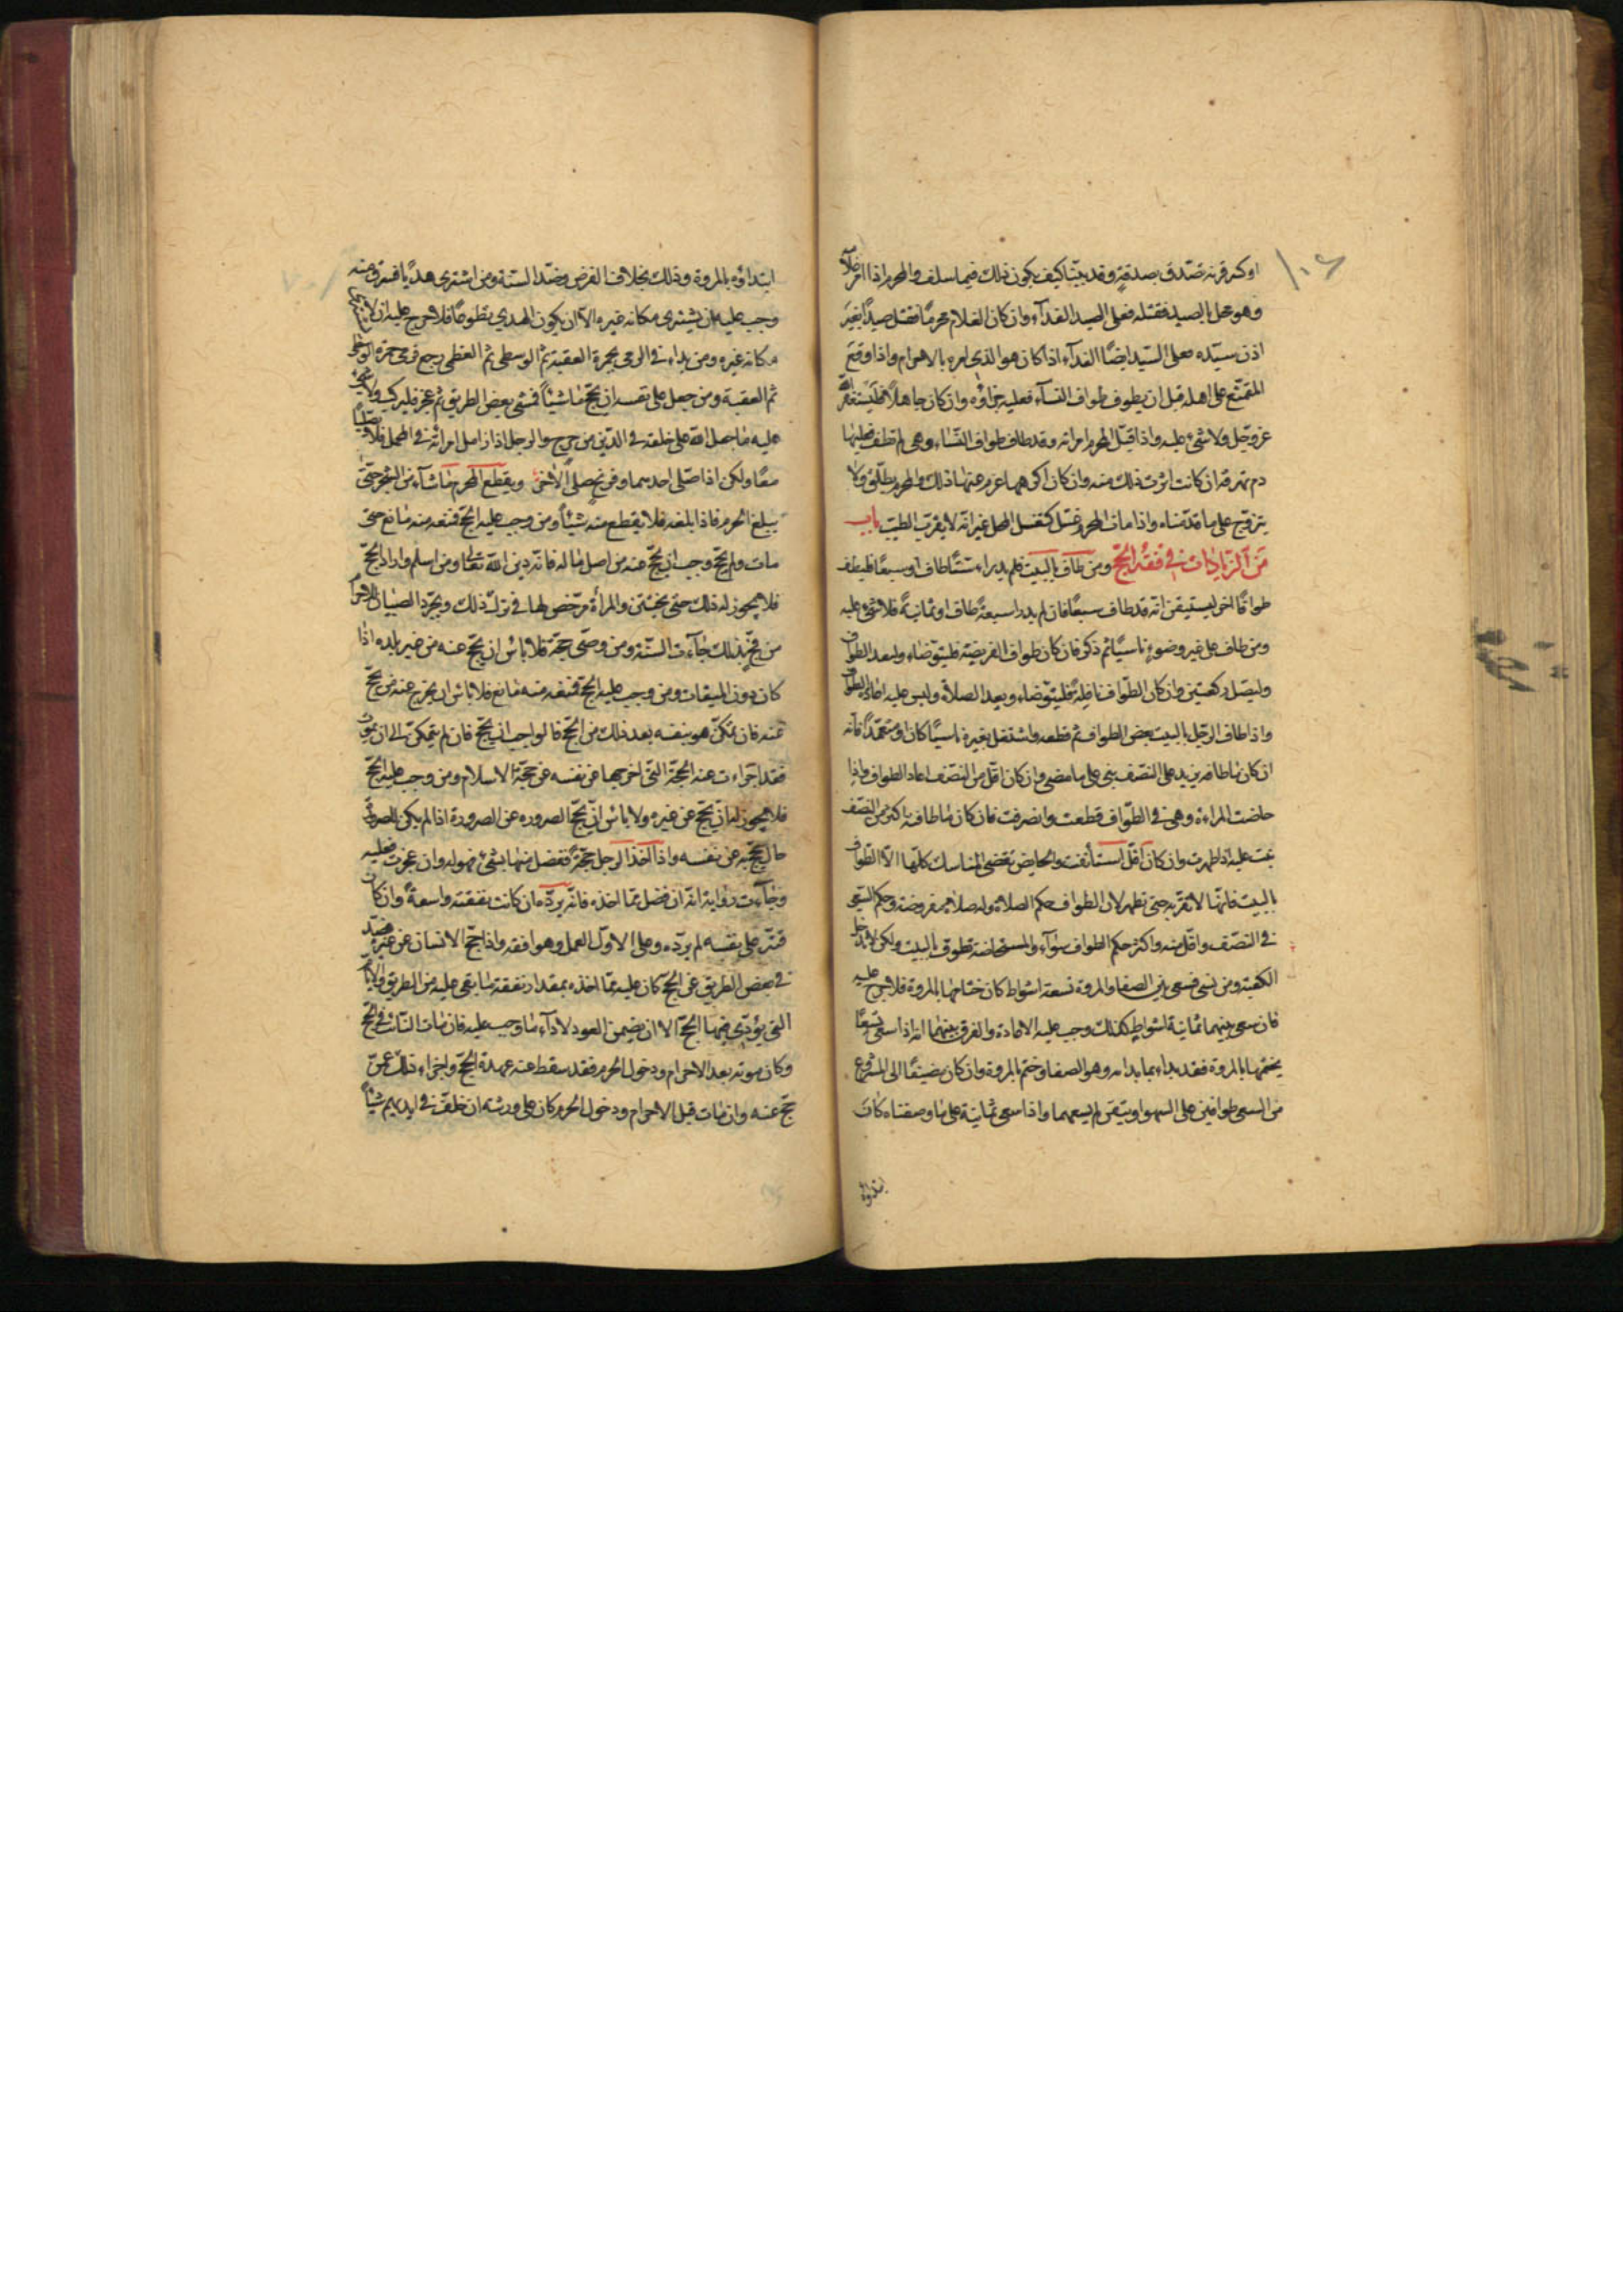 او كسر قرنه تصدق بصدقة وقد بيّنا كيف يكون ذلك فيما سلف والمحرم اذا امر غلامه
وهو محل بالصيد فقتله فعلى السيد الفدآء وان كان الغلام محرمًا فقتل صيدًا بغير
اذن سيّده فعلى السيّد ايضًا الفدآء اذا كان هو الذي امره بالاحرام واذا وقع
المتمتّع على اهله قبل ان يطوف طواف النسآء فعليه جزاؤه وان كان جاهلا فليستغفر الله
عزوجل ولا شئ عليه واذا قبّل المحرم امراته وقد طاف طواف النّسآء وهى لم تطف فعليها
دم تهرقه ان كانت اثرت ذلك منه وان كان اكرهها غرم عنها ذلك والمحرم يطلّق ولا
يتزوّج على ما قدّمناه واذا مات المحرم غسّل كتغسل المحل غير انّه لا يقرب الطيب باب
من الزيادات في فقه الحجّ ومن طاف بالبيت فلم يدراء ستّاطاف او سبعًا فليطف
طوافًا اخر ليستيقن انّه قد طاف سبعًا فان لم يدر اسبعة طاف او ثمانية فلا شئ عليه
ومن طاف على غير وضوء ناسيًا ثم ذكر فان كان طواف الفريضة فليتوضاء وليعد الطواف
وليصلّ ركعتين وان كان الطّواف نافلة فليتوضاء ويعد الصلاة وليس عليه اعادة الطواف
واذا طاف الرجل بالبيت بعض الطواف ثم قطعه واشتغل بغيره ناسيًا كان او متعمّدًا فانه
ان كان ما طافه يزيد على النصف بنى على ما مضى وان كان اقل من النصف اعاد الطواف واذا
حاضت المراءة وهى في الطّواف قطعت وانصرفت فان كان ما طافته اكثر من النصف
بنت عليه اذا طهرت وان كان اقلّ استأنفت والحايض تقضى المناسك كلّها الاّ الطّواف
بالبيت فانها لا تقربه حتى تطهر لان الطواف حكم الصلاة وله صلاة مفروضة وحكم السعى
في النصّف واقل منه واكثر حكم الطواف سوآء والمستحاضة تطوف بالبيت ولكن لا تدخل
الكعبة ومن نسى فسعى بين الصفا والمروة تسعة اشواط كان ختامها بالمروة فلا حرج عليه
فان سعى بينهما ثمانية اشواط كذلك وجب عليه الاعادة والفرق بينهما انه اذا سعى تسعًا
يختمها بالمروة فقد بداء بما بداء به وهو الصفا وختم بالمروة وان كان مضيفًا الى المشروع
من السعى طوافين على السهو او يتقن لم يسعهما واذا سعى ثمانية على ما وصفناه كان
ابتداؤه
ابتداؤه بالمروة وذلك بخلاف الفرض وضدّ السنّة ومن اشترى هديًا فسرق منه
وجب عليه ان يشترى مكانه غيره الاّ ان يكون الهدي تطوعًا فلا حرج عليه ان لا
مكانه غيره ومن بداء في الرمى بجمرة العقبة ثم الوسطى ثم العظمى رجع فرمى جمرة الوسطى
ثم العقبة ومن جعل على نفسه ان يحجّ ماشيًا فمشى بعض الطريق ثم عجز فليركب ولا شئ
عليه ما جعل الله على خلقه في الدّين من حرج والرجل اذا زامل امراته في المحمل فلا يصلّيا
معًا ولكن اذا صلّى احدهما وفرغ صلّى الاخر ويقطع المحرم ما شآء من الشجر حتى
يبلغ الحرم فاذا بلغه فلا يقطع منه شيئًا ومن وجب عليه الحجّ فمنعه منه مانع حتى
مات ولم يحجّ وجب ان يحجّ عنه من اصل ماله فانه دين الله تعالى ومن اسلم واراد الحجّ
فلا يجوز له ذلك حتى يختتن والمرأة مرخّص لها في ترك ذلك ويجرّد الصبيان للاحرام
من فخّ بذلك جآءت السنّة ومن وصّى بحجّة فلا بأس ان يحجّ عنه من غير بلده اذا
كان دون الميقات ومن وجب عليه الحجّ فمنعه منه مانع فلا باس ان يخرج عنه من يحجّ
عنه فان تمكّن هو بنفسه بعد ذلك من الحجّ فالواجب ان يحجّ فان لم يتمكّن الى ان يموت
فقد اجزاءت عنه الحجّة التى اخرجها عن نفسه عن حجّة الاسلام ومن وجب عليه الحجّ
فلا يجوز له ان يحجّ عن غيره ولا بأس ان يحجّ الصروره عن الصرورة اذا لم يكن للصرورة
مال يحجّ به عن نفسه واذا اخذ الرجل حجّة ففضل منها شئ فهو له وان عجزت فعليه
وجآءت رواية انه ان فضل ممّا اخذه فانه يردّه ان كانت نفقته واسعة وان كان
قتّر على نفسه لم يردّه وعلى الاول العمل وهو افقه واذا حجّ الانسان عن غيره فصدّ
في بعض الطريق عن الحجّ كان عليه ممّا اخذه بمقدار نفقة ما بقى عليه من الطريق والايّام
التى يؤدّى فيها الحجّ الا ان يضمن العود لادآء ما وجب عليه فان مات النّائب في الحجّ
وكان موته بعد الاحرام ودخول الحرم فقد سقط عنه عهدة الحجّ واجزاء ذلك عمّن
حجّ عنه وان مات قبل الاحرام ودخول الحرم كان على ورثته ان خلّف في ايديهم شيئًا